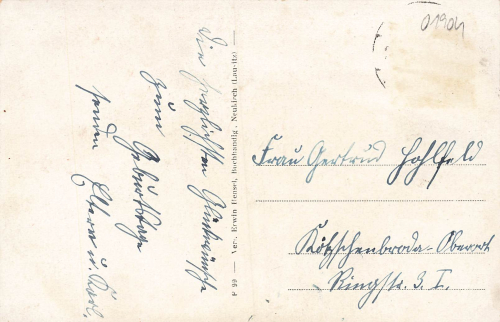 01904
Die herzlichsten Glückwünsche
zum
Geburtstage
senden Eltern u. Karl.
F 99 — Ver. Erwin Hensel, Buchhandlg., Neukirch (Lausitz) —
Frau Gertrud Hohlfeld
Kötzschenbroda-Oberort
Ringstr. 3. I.